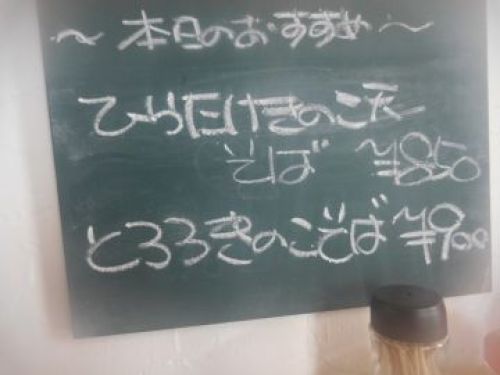 〜本日のおすすめ〜
ひらたけきのこ天
そば ¥850
とろろきのこそば ¥900